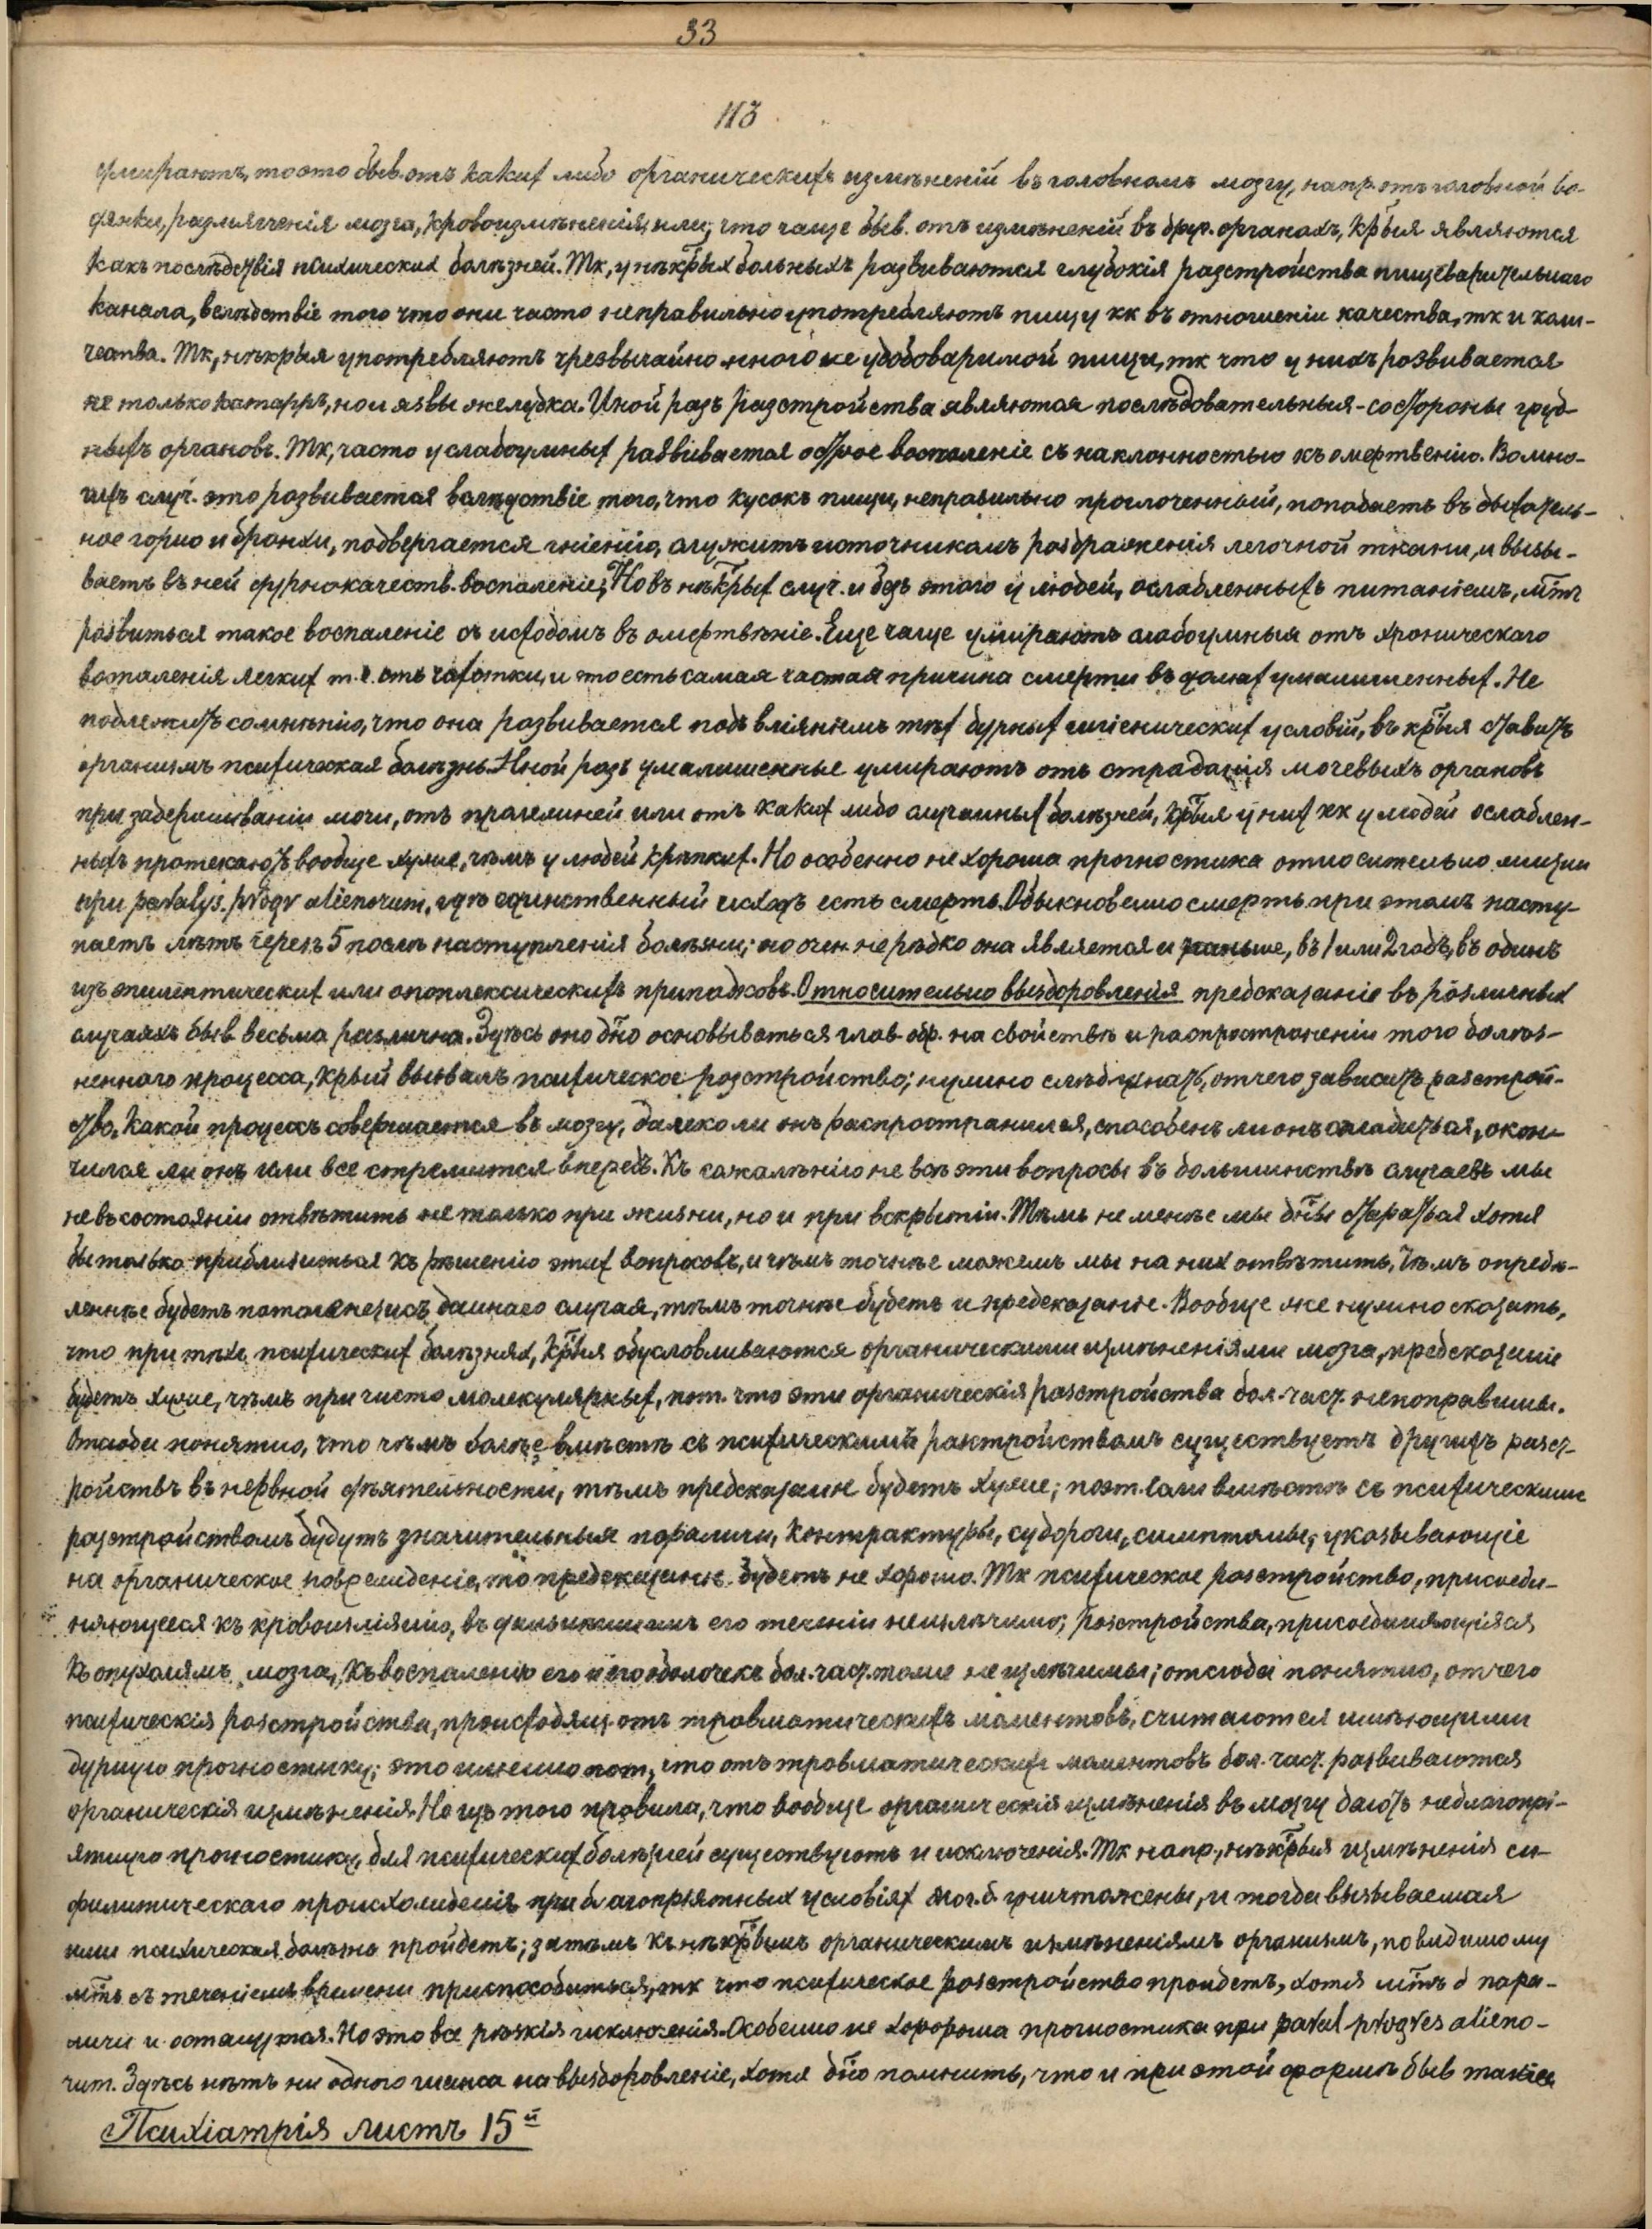 33
113
умираютъ, то это быв. отъ какихъ либо органическихъ измѣненій въ головномъ мозгу, напр. отъ головной во-
дянки, размягченія мозга, кровоизмѣненія, или, что чаще быв. отъ измѣненій въ друг. органахъ, крыя являются
какъ послѣдствія психических болѣзней. Тк, у нѣкрыхъ больныхъ развиваются глубокія разстройства пищеварительнаго
канала, вслѣдствіе того что они часто неправильно употребляютъ пищу кк въ отношеніи качества, тк и коли-
чества. Тк, нѣкрыя употребляютъ чрезвычайно много не удобоваримой пищи, тк что у нихъ развивается
не только катарръ, но и язвы желудка. Иной разъ разстройства являются послѣдовательныя - со стороны груд-
ныхъ органовъ. Тк, часто у слабоумныхъ развивается острое воспаленіе съ наклонностью къ омертвенію. Во мно-
гихъ случ. это развивается вслѣдствіе того, что кусокъ пищи, неправильно проглоченный, попадаетъ въ дыхатель-
ное горло и бронхи, подвергается гніенію, служитъ источникомъ раздраженія легочной ткани, и вызы-
ваетъ въ ней дурнокачеств. воспаленіе; Но въ нѣкрых случ. и безъ этого у людей, ослабленныхъ питаніемъ, мтъ
развиться такое воспаленіе съ исходомъ въ омертвѣніе. Еще чаще умираютъ слабоумныя отъ хроническаго
воспаленія легких т.е. отъ чахотки, и это есть самая частая причина смерти въ домах умалишенных. Не
подлежитъ сомнѣнію, что она развивается подъ вліяніемъ тѣх дурных гигіеническихъ условій, въ крыя ставитъ
организмъ психическая болѣзнь. Иной разъ умалишенные умираютъ отъ страданія мочевыхъ органовъ
при задерживаніи мочи, отъ пролежней или отъ каких либо случайных болѣзней, крыя у них кк у людей ослаблен-
ныхъ протекаютъ вообще хуже, чѣмъ у людей крѣпких. Но особенно не хороша прогностика относительно жизни
при paralys. progr alienorum, гдѣ единственный исходъ есть смерть. Обыкновенно смерть при этомъ насту-
паетъ лѣтъ через 5 послѣ наступленія болѣзни; но очен не рѣдко она является и раньше, въ 1 или 2 годъ, въ одинъ
изъ эпилептических или апоплексическихъ припадковъ. Относительно выздоровленія предсказаніе въ различных
случаяхъ быв весьма различна. Здѣсь оно дно основываться глав. обр. на свойствѣ и распространеніи того болѣз-
неннаго процесса, крый вызвалъ психическое разстройство; нужно слѣд. знать, отчего зависитъ разстрой-
ство, какой процессъ совершается въ мозгу, далеко ли онъ распространился, способенъ ли онъ сгладиться, окон-
чился ли онъ или все стремится впередъ. Къ сожалѣнію не всѣ эти вопросы въ большинствѣ случаевъ мы
не въ состояніи отвѣтить не только при жизни, но и при вскрытіи. Тѣмъ не менѣе мы дны стараться хотя
бы только приблизиться къ рѣшенію этих вопросовъ, и чѣмъ точнѣе можемъ мы на них отвѣтить, чѣмъ опредѣ-
леннѣе будетъ патогенезисъ даннаго случая, тѣмъ точнѣе будетъ и предсказаніе. Вообще же нужно сказать,
что при тѣхъ психических болѣзнях, крыя обусловливаются органическими измѣненіями мозга, предсказаніе
будетъ хуже, чѣмъ при чисто молекулярных, пот. что эти органическія разстройства бол. част. непоправимы.
Отсюда понятно, что чѣмъ болѣе вмѣстѣ съ психическимъ разстройствомъ существуетъ другихъ разст-
ройствъ въ нервной дѣятельности, тѣмъ предсказаніе будетъ хуже; поэт. если вмѣстѣ съ психическимъ
разстройствомъ будутъ значительныя параличи, контрактуры, судороги, симптомы, указывающіе
на органическое поврежденіе, то предсказаніе будетъ не хорошо. Тк психическое разстройство, присоеди-
няющееся къ кровоизліянію, въ дальнѣйшемъ его теченіи неизлѣчимо; разстройства, присоединяющіяся
къ опухолямъ мозга, къ воспаленію его и его оболочекъ бол. част. тоже не излѣчимы; отсюда понятно, отчего
психическія разстройства, происходящ. отъ травматическихъ моментовъ, считаются имѣющими
дурную прогностику; это именно пот., что отъ травматическихъ моментовъ бол. част. развиваются
органическія измѣненія. Но изъ того правила, что вообще органическія измѣненія въ мозгу даютъ неблагопрі-
ятную прогностику, для психических болѣзней существуютъ и исключенія. Тк напр., нѣкрыя измѣненія си-
филитическаго происхожденія при благопріятных условіях мог. б. уничтожены, и тогда вызываемая
ими психическая болѣзнь пройдетъ; затѣмъ къ нѣкрымъ органическимъ измѣненіямъ организмъ, по видимому
мтъ съ теченіемъ времени приспособиться, тк что психическое разстройство пройдетъ, хотя мтъ б пара-
личи и останутся. Но это все рѣзкія исключенія. Особенно не хоророша прогностика при paral progres alieno-
rum. Здѣсь нѣтъ ни одного шанса на выздоровленіе, хотя дно помнить, что и при этой формѣ быв такіе
Психіатрія листъ 15й